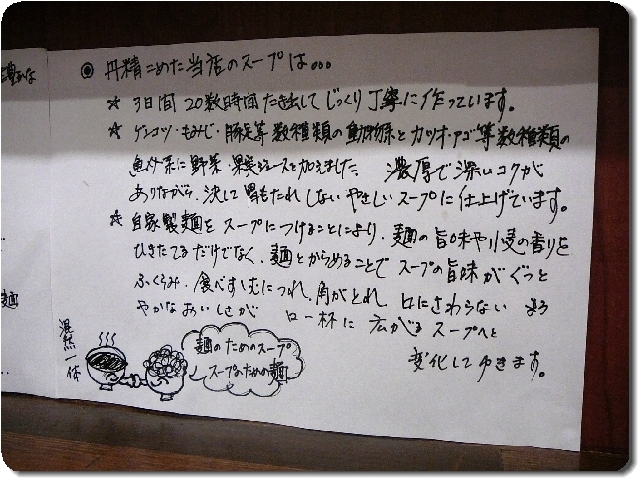 ◎ 丹精こめた当店のスープは…
☆ 3日間 20数時間たき出してじっくり丁寧に作っています。
☆ ゲンコツ・もみじ・豚足等数種類の動物系とカツオ・アゴ等数種類の
魚介系に野菜・果実ジュースを加えました。 濃厚で深いコクが
ありながら、決して胃もたれしないやさしいスープに仕上げています。
☆ 自家製麺をスープにつけることにより、麺の旨味や小麦の香りを
ひきたてるだけでなく、麺とからめることでスープの旨味がぐっと
ふくらみ、食べすすむにつれ、角がとれ、口にさわらない まろ
やかなおいしさが 口一杯に 広がるスープへと
変化してゆきます。
混然一体
麺のためのスープ
スープのための麺
麺